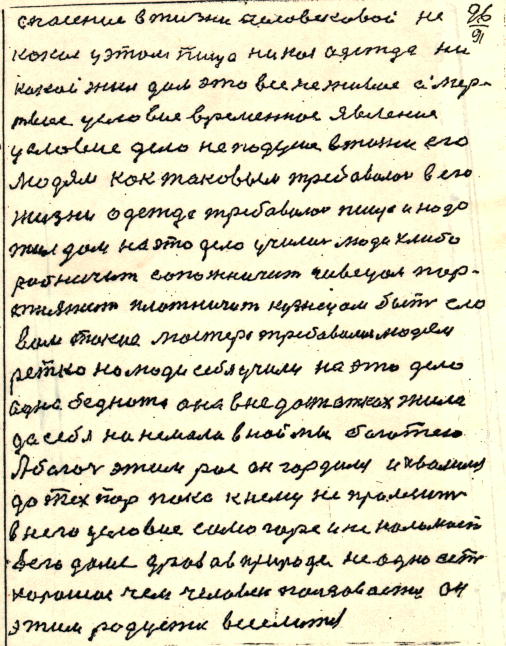 спасение в жизни человековой не 96/91
какая у этом пища ни кая одежда ни
какой жил дом это все не живое а мер-
твое условие временное явление
условие дело не подуша в жизни его
Людям как таковым требавалас в его
жизни одежда требавалос пища и надо
жил дом на это дело учили люди хлиба
сапожничит
плотничит кузнецом быть сло
вом такие мастера требавалис людям
ретко но люди себя учили на это дело
одна беднота она в недостатках жила
да себя нанемала в наймы багатею
А багач этим рос он гордилс и хвалилс
до тех пор пока к нему не
в него условие само горе и не
в его доме природа не одно есть
харошое чем человек он
этим радуетя веселитя